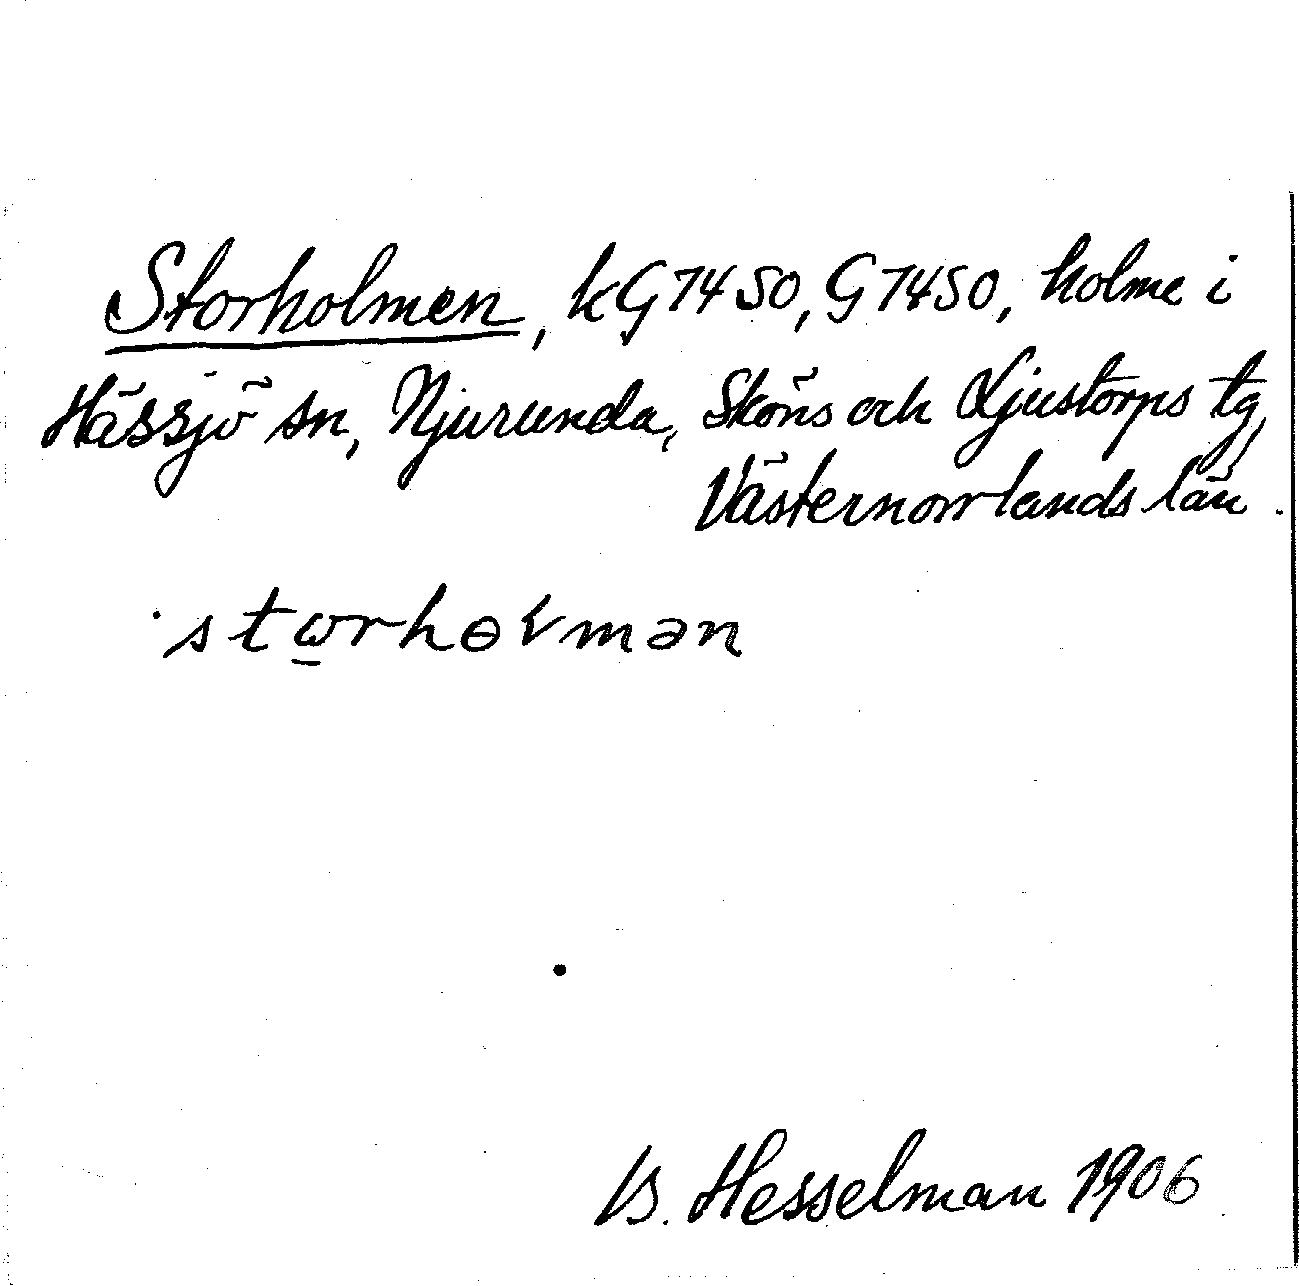 Storholmen, kG7450, G7450, holme i
Hässjö sn, Njurunda, Sköns och Ljustorps tg,
Västernorrlands län.
stωrhɵɽmən
B. Hesselman 1906